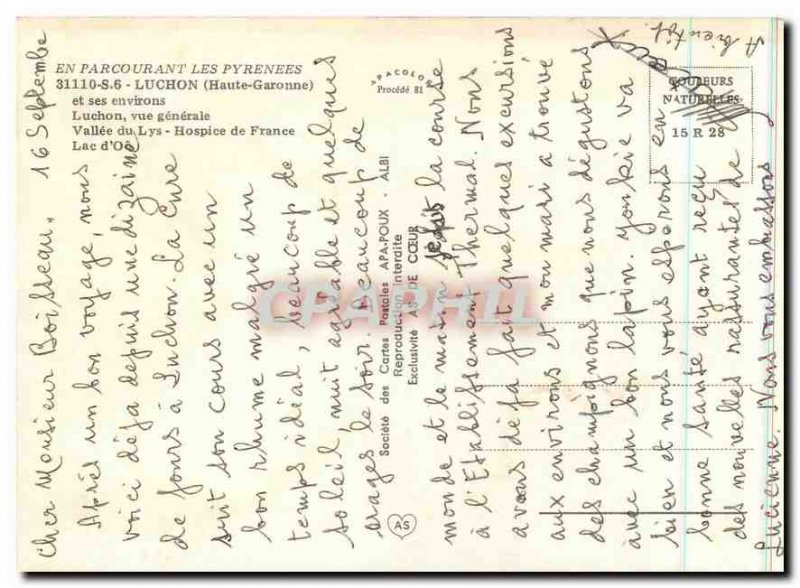 EN PARCOURANT LES PYRENEES
31110-S.6 - LUCHON (Haute-Garonne)
et ses environs
Luchon, vue générale
Vallée du Lys - Hospice de France
Lac d'Oô
APACOLOR
Procédé 81
COULEURS
NATURELLES
15 R 28
Société des Cartes Postales APA-POUX - ALBI
Reproduction interdite
Exclusivité AS DE CŒUR
AS
CPAPHIL
16 Septembe
Cher Monsieur Boisseau,
Après un bon voyage, nous
voici déja depuis une dizaine
de jours à Luchon. La Cure
suit son cours avec un
bon rhume malgré un
temps idéal, beaucoup de
soleil, nuit agréable et quelques
orages le soir. Beaucoup de
monde et le matin la course
à l'Etablissement Thermal. Nous
avons déja fait quelques excursions
aux environs et mon mari a trouvé
des champignons que nous dégustons
avec un bon lapin. Yonkie va
bien et nous vous esperons en
bonne santé ayant reçu
des nouvelles rassurantes de
Lucienne. Nous vous embrassons
A bientot.